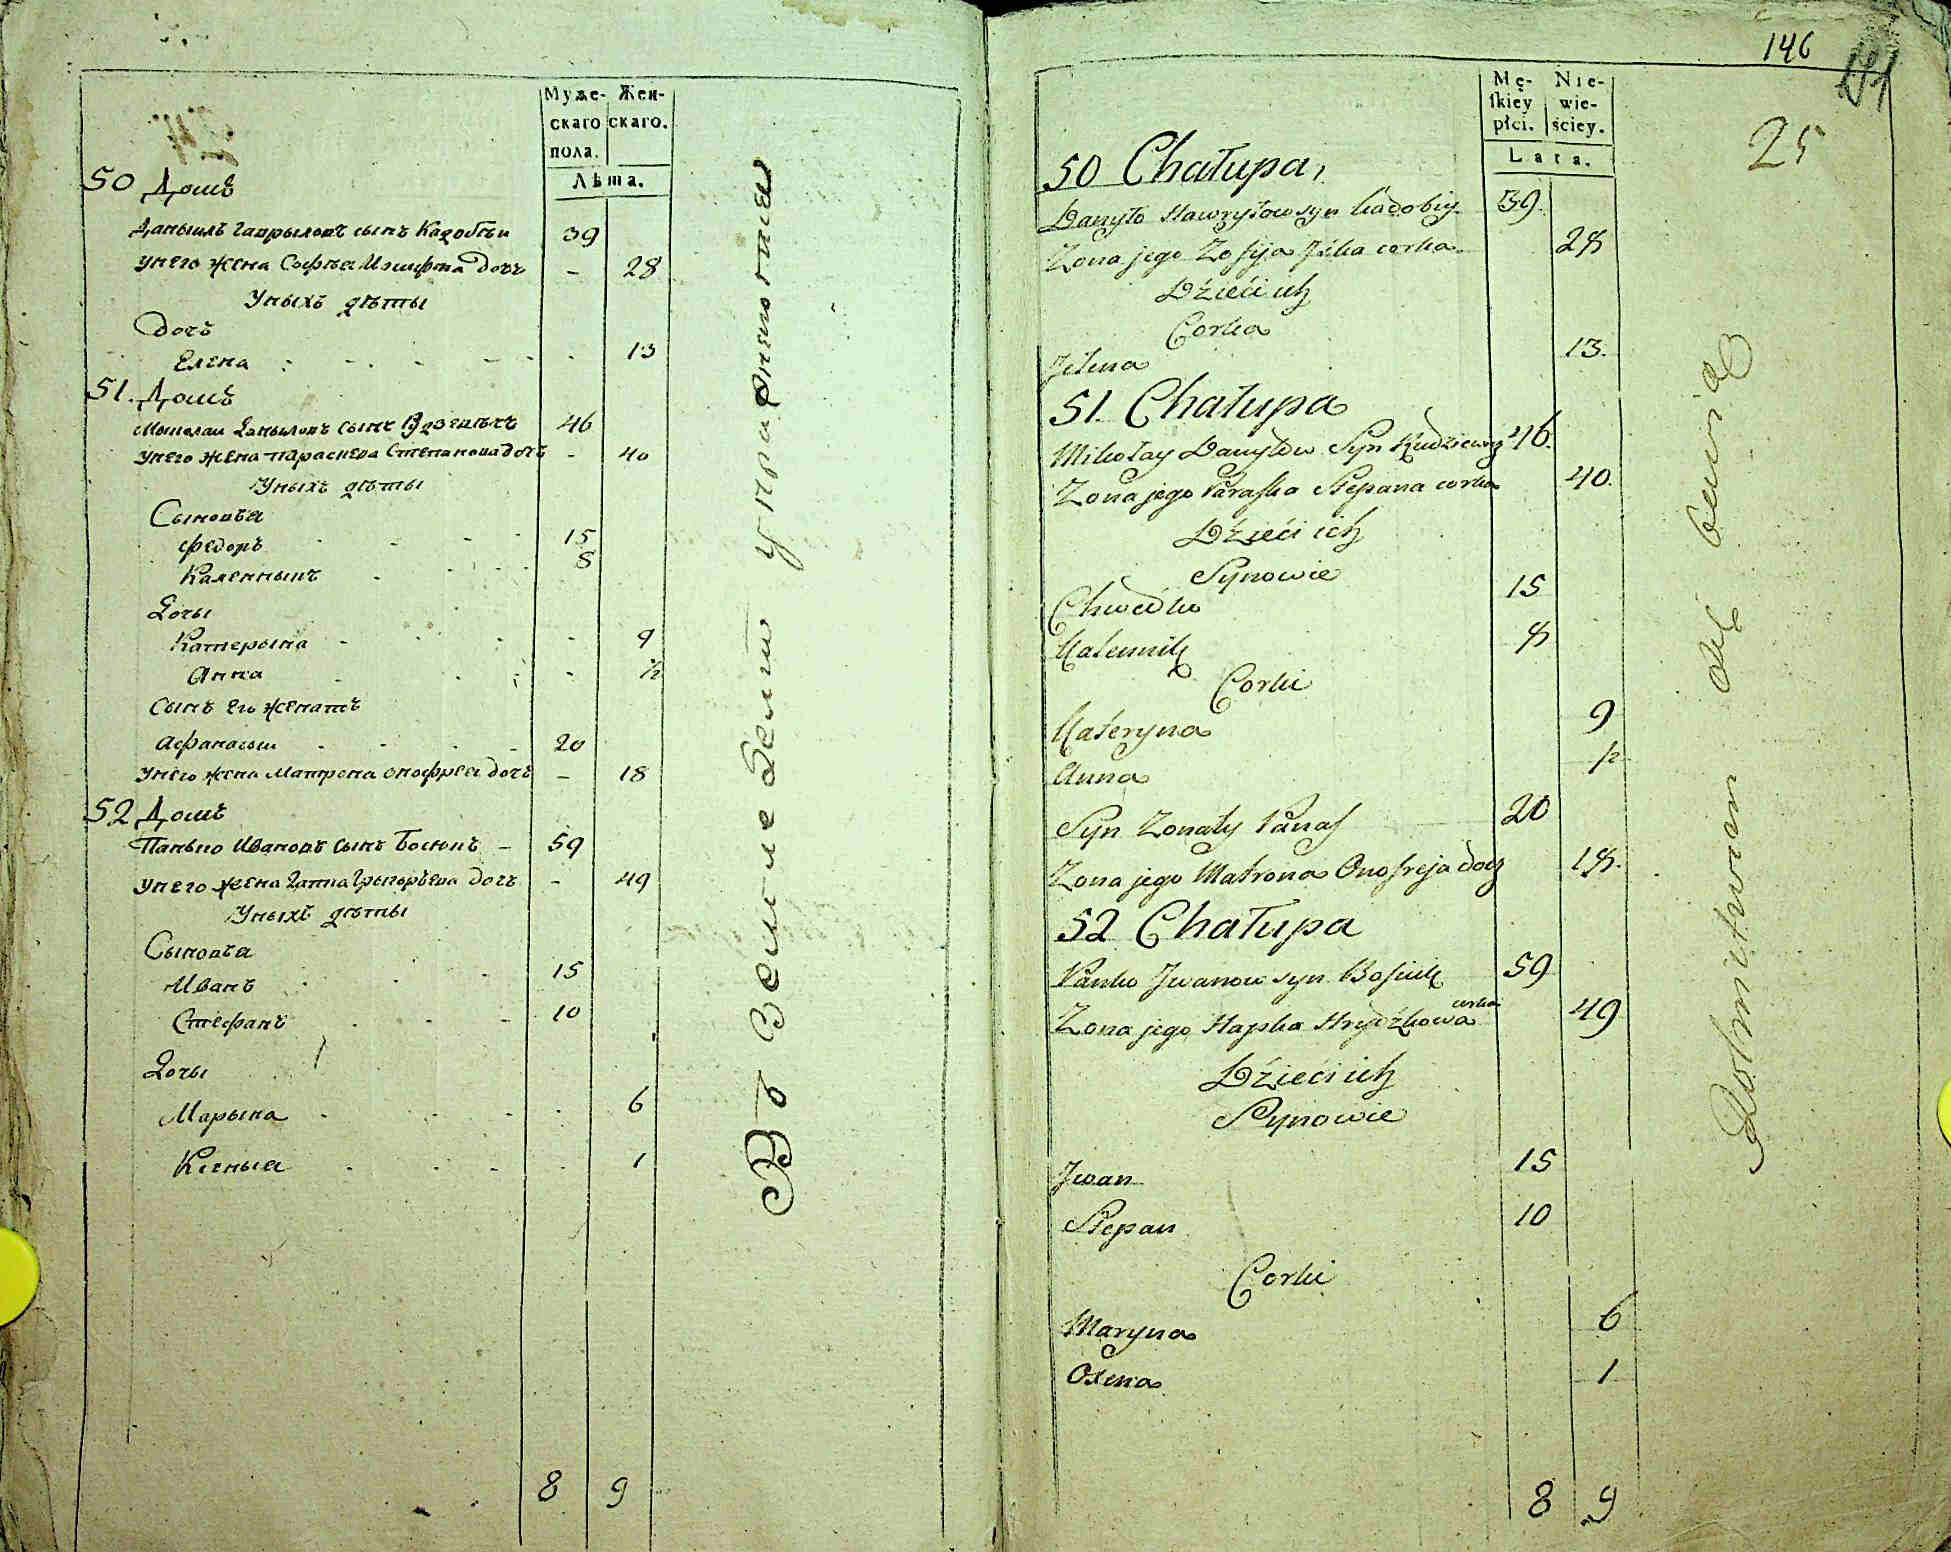 Муже- Жен-
скаго скаго.
пола.
Лѣта.
50 Домъ
Данылъ Гаврыловъ сынъ Кадобъи 39
Унего жена Софъя Иосифова дочь - 28
Уныхъ дѣты
Дочь
Елена 13
51. Домъ
Мыколаи Даныловъ сынъ 46
Унего жена Параскева Степанова дочь - 40
Уныхъ дѣты
Сыновъя
Федоръ 15
Каленныкъ 8
Дочы
Катерына 9
Анна ½
Сынъ его женатъ
Афанасыи 20
Унего жена Матрона Онофрея дочь - 18
52 Домъ
Панько Ивановъ сынъ Босюкъ - 59
Унего жена Гапка Грыгорьева дочь - 49
Уныхъ дѣты
Сыновъя
Иванъ 15
Стефанъ 10
Дочы
Марына 6
Ксеныя 1
8 9
Въ
146
25
Mę- Nie-
skiey wie-
płci. ściey.
Lata.
50 Chałupa,
Danyło Hawryłow syn Kadobiy 39
Zona jego Zofija corka 28
Dźieci ich
Corka
Jelena 13.
51. Chałupa
Mikołay Danyłow Syn Kudziewicz 46.
Zona jego Paraska Stepana corka 40.
Dźieci ich
Synowie
Chwedko 15
Kalennik 8
Corki
Kateryna 9
Anna ½
Syn Zonaty Panas 20
Zona jego Matrona Onofreja docz 18.
52 Chałupa
Panko Jwanow syn Bosiuk 59
Zona jego Hapka Hrydźkowa corka 49
Dźieci ich
Synowie
Jwan 15
Stepan 10
Corki
Maryna 6
Oxena 1
8 9